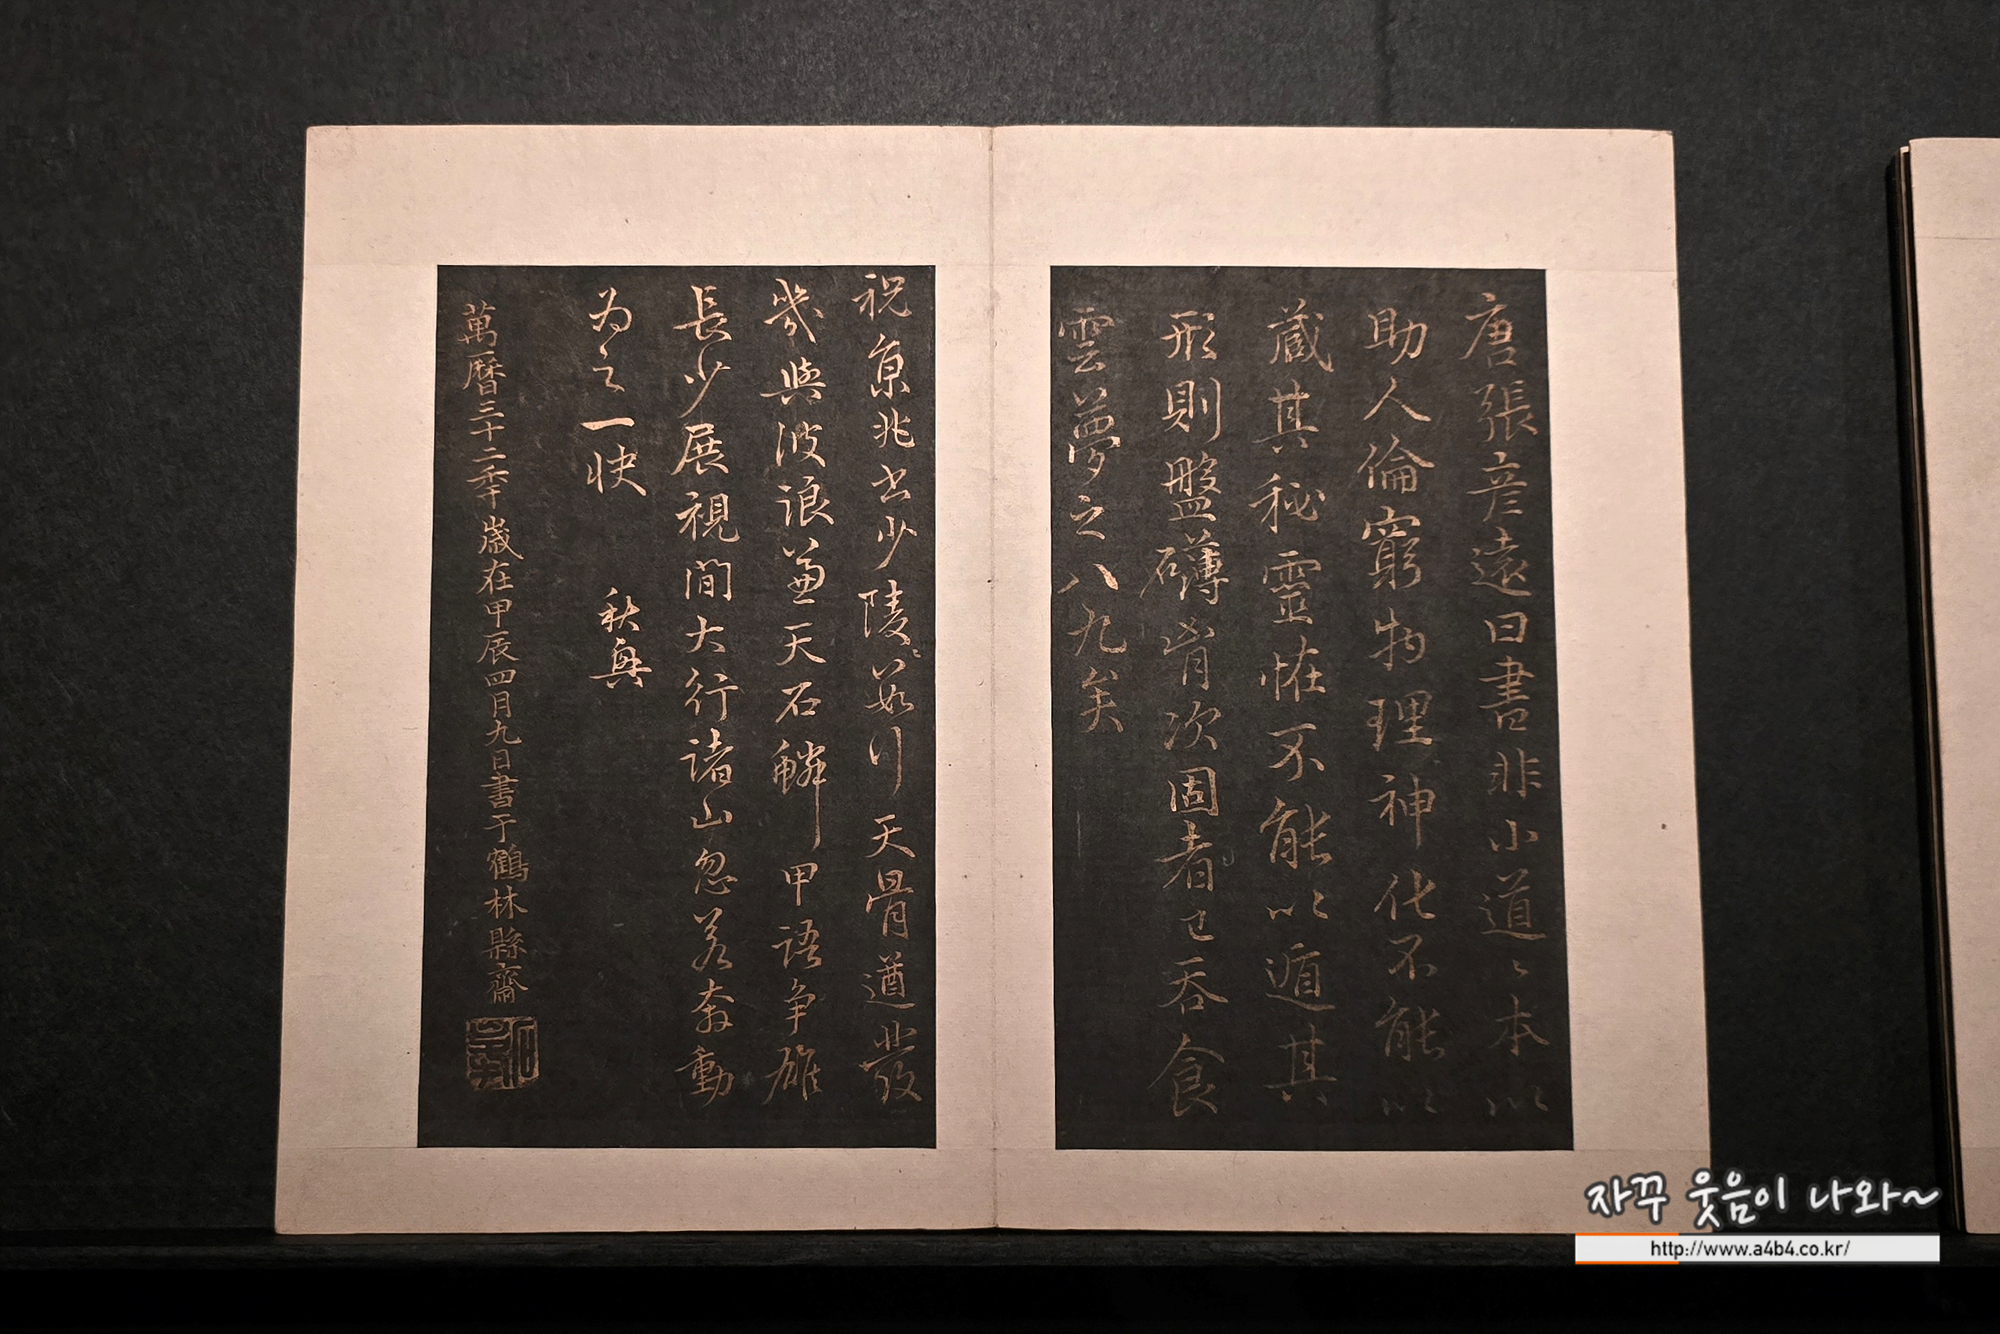 唐張彦遠曰書非小道〻本以
助人倫窮物理神化不能以
藏其秘靈怪不能以遁其
形則盤礴胷次固者已吞食
雲夢之八九矣
祝京兆书少陵 天骨遒發
幾與波浪兼天石鱗甲語爭雄
長少展視間大行諸山忽若奔動
为之一快
秋興
萬曆三十二秊歲在甲辰四月九日書于鶴林縣齋
자꾸 웃음이 나와~
http://www.a4b4.co.kr/